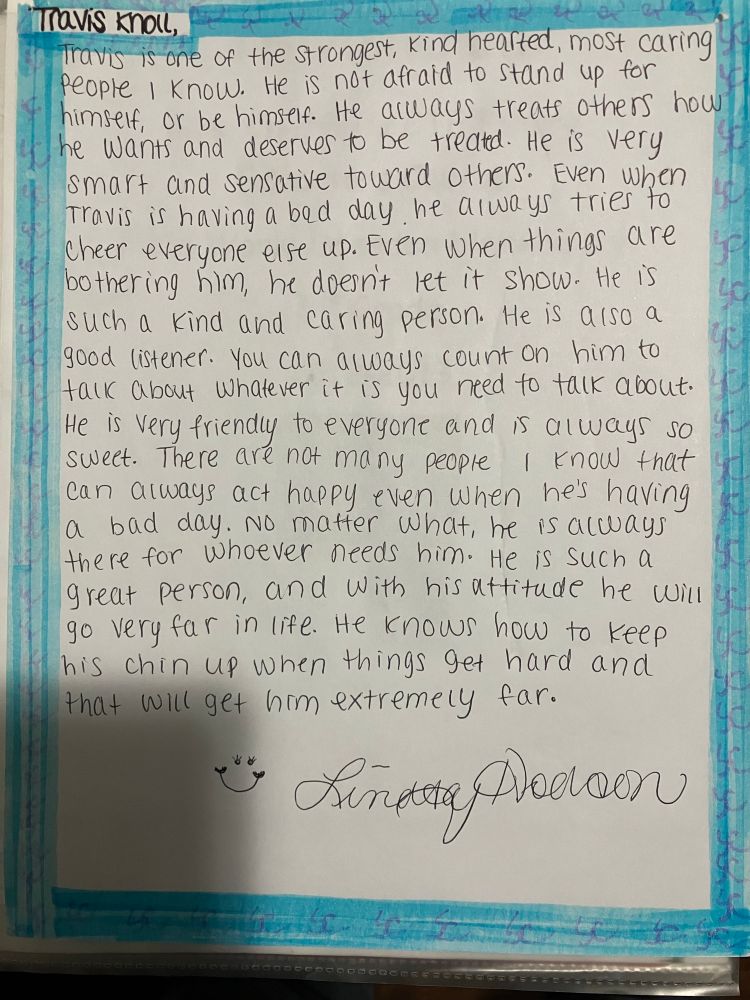 Travis Knoll,
Travis is one of the strongest, kind hearted, most caring
people I know. He is not afraid to stand up for
himself, or be himself. He always treats others how
he wants and deserves to be treated. He is very
smart and sensative toward others. Even when
Travis is having a bad day he always tries to
cheer everyone else up. Even when things are
bothering him, he doesn't let it show. He is
such a kind and caring person. He is also a
good listener. You can always count on him to
talk about whatever it is you need to talk about.
He is very friendly to everyone and is always so
sweet. There are not many people I know that
can always act happy even when he's having
a bad day. No matter what, he is always
there for whoever needs him. He is such a
great person, and with his attitude he will
go very far in life. He knows how to keep
his chin up when things get hard and
that will get him extremely far.